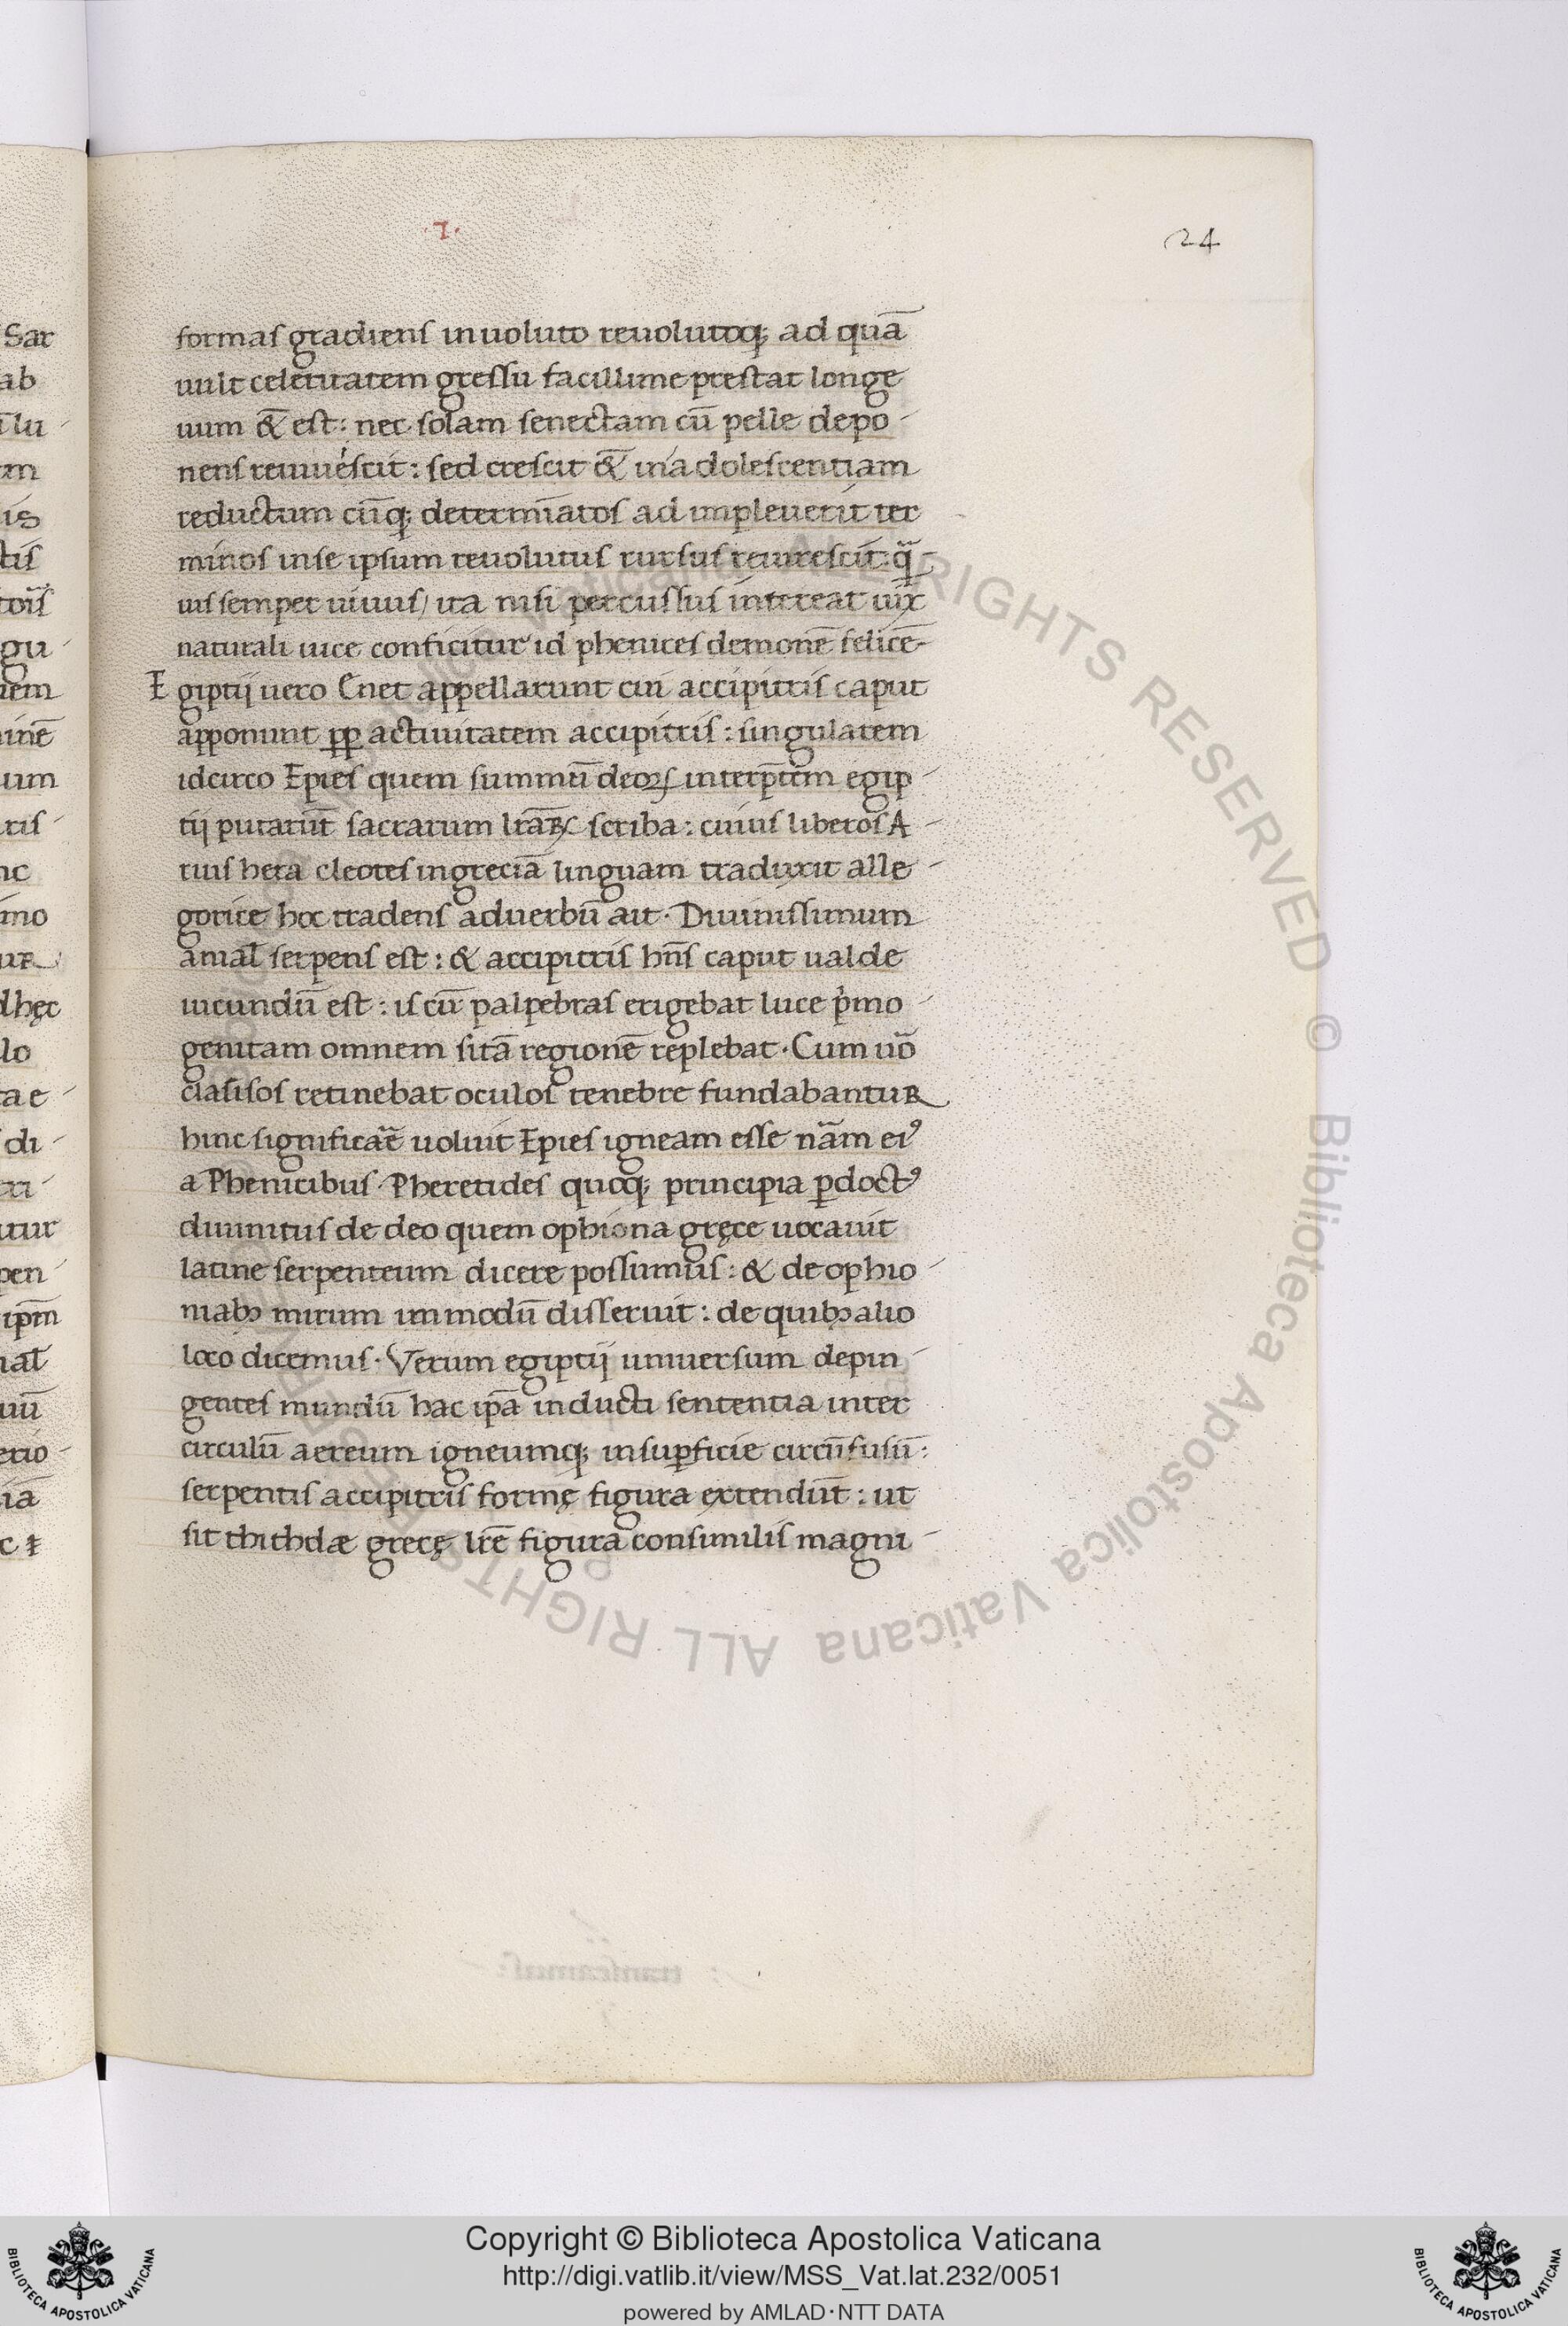 .7.
24
formas gradiens in uoluto reuolutoq; ad quā
uult celeritatem gressu facillime prestat longe
uum &̄ est: nec solam senectam cū pelle depo-
nens reuiuescit: sed crescit &̄ in adolescentiam
reductum cūq; determīatos ad impleuerit ter
minos in se ipsum reuolutus rursus reuirescit: q̄-
uis semper uiuus/ ita nisi percussus intereat uix
naturali uice conficitur id phenices demonē felicē-
Egiptij uero Cnet appellarunt cui accipitris caput
apponunt pp̄ actiuitatem accipitris: singulatem
idcirco Epies quem summū deoꝝ interp̄tem egip-
tij putarūt sacrarum lrāꝝ scriba: cuius liberos A-
rius hera cleotes in greciā linguam traduxit alle-
gorice hoc tradens ad uerbū ait. Diuinissimum
anial̄ serpens est: & accipitris hn̄s caput ualde
iucundū est: is cū palpebras erigebat luce p̓mo-
genitam omnem sitā regionē replebat. Cum uō
clasisos retinebat oculos tenebre fundabantur
hinc significar̄e uoluit Epies igneam esse nāam eiꝰ
a Phenicibus. Pheretides quoq; principia ꝑdoctꝰ
diuinitus de deo quem ophiona gręce uocauit
latine serpenteum dicere possumus: & de ophio-
niabꝫ mirum im modū disseruit: de quibꝫ alio
loco dicemus. Verum egiptij uniuersum depin-
gentes mundū hac ip̄a inducti sententia inter
circulū aereum igneumq; in suꝑficie circūfusū:
serpentis accipitris formę figura extendūt: ut
sit thithdæ grecę lr̄e figura consimilis magni-
Sar
ab
lu-
m
is
tis
gu-
iem
inē
um
ris-
nc
imo
ur
dhęc
lo
tae-
di-
ri-
itur
pen-
ip̄m
ial̄
uū
erio-
iā
ALL RIGHTS RESERVED © Biblioteca Apostolica Vaticana ALL RIGHTS
Copyright © Biblioteca Apostolica Vaticana
http://digi.vatlib.it/view/MSS_Vat.lat.232/0051
powered by AMLAD·NTT DATA
BIBLIOTECA APOSTOLICA VATICANA
BIBLIOTECA APOSTOLICA VATICANA